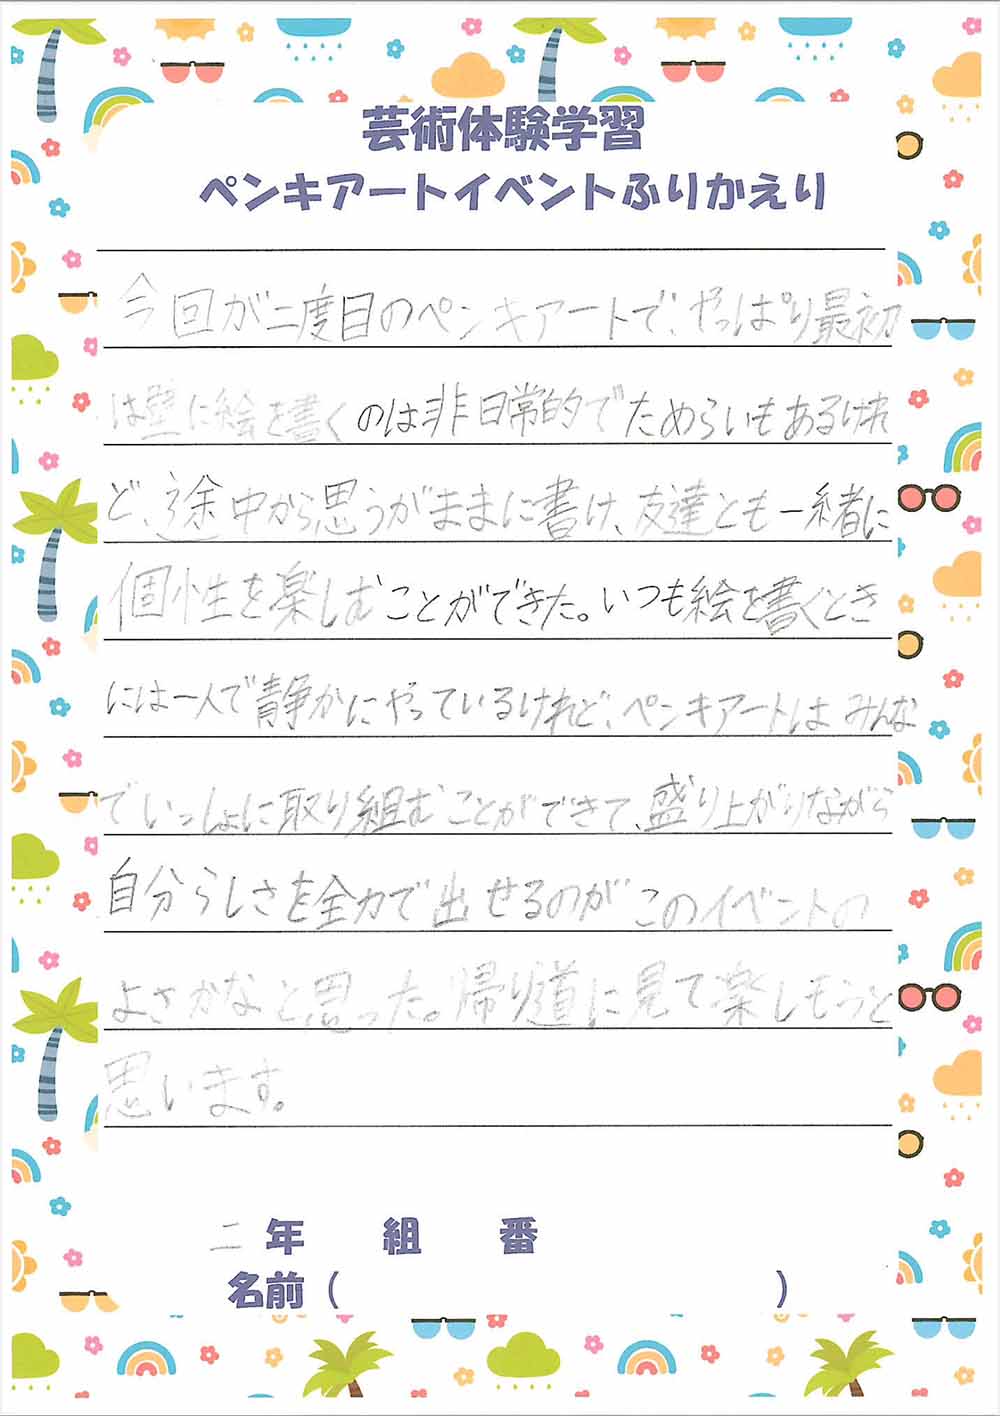 芸術体験学習
ペンキアートイベントふりかえり
今回が二度目のペンキアートで、やっぱり最初
は壁に絵を書くのは非日常的でためらいもあるけれ
ど、途中から思うがままに書け、友達とも一緒に
個性を楽しむことができた。いつも絵を書くとき
には一人で静かにやっているけれど、ペンキアートはみんな
でいっしょに取り組むことができて、盛り上がりながら
自分らしさを全力で出せるのがこのイベントの
よさかなと思った。帰り道に見て楽しもうと
思います。
二年 組 番
名前( )